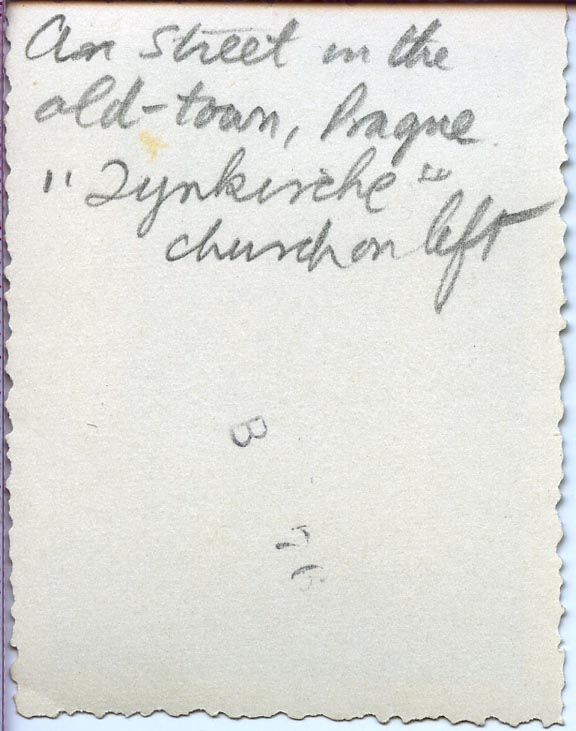 An street in the
old-town, Prague.
"Tynkirche"
church on left
B